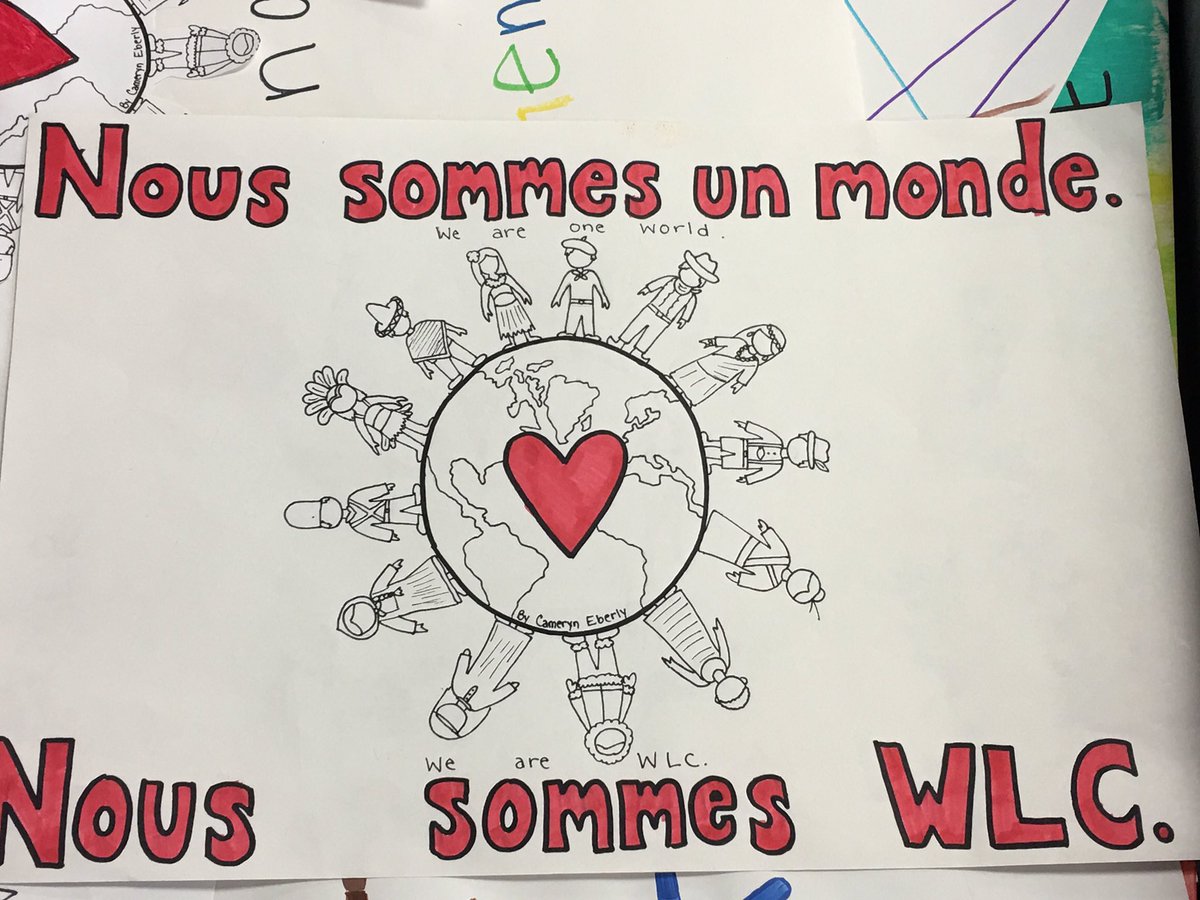 By Cameryn Eberly
no
en
Nous sommes un monde.
We are one world.
By Cameryn Eberly
We are WLC.
Nous sommes WLC.